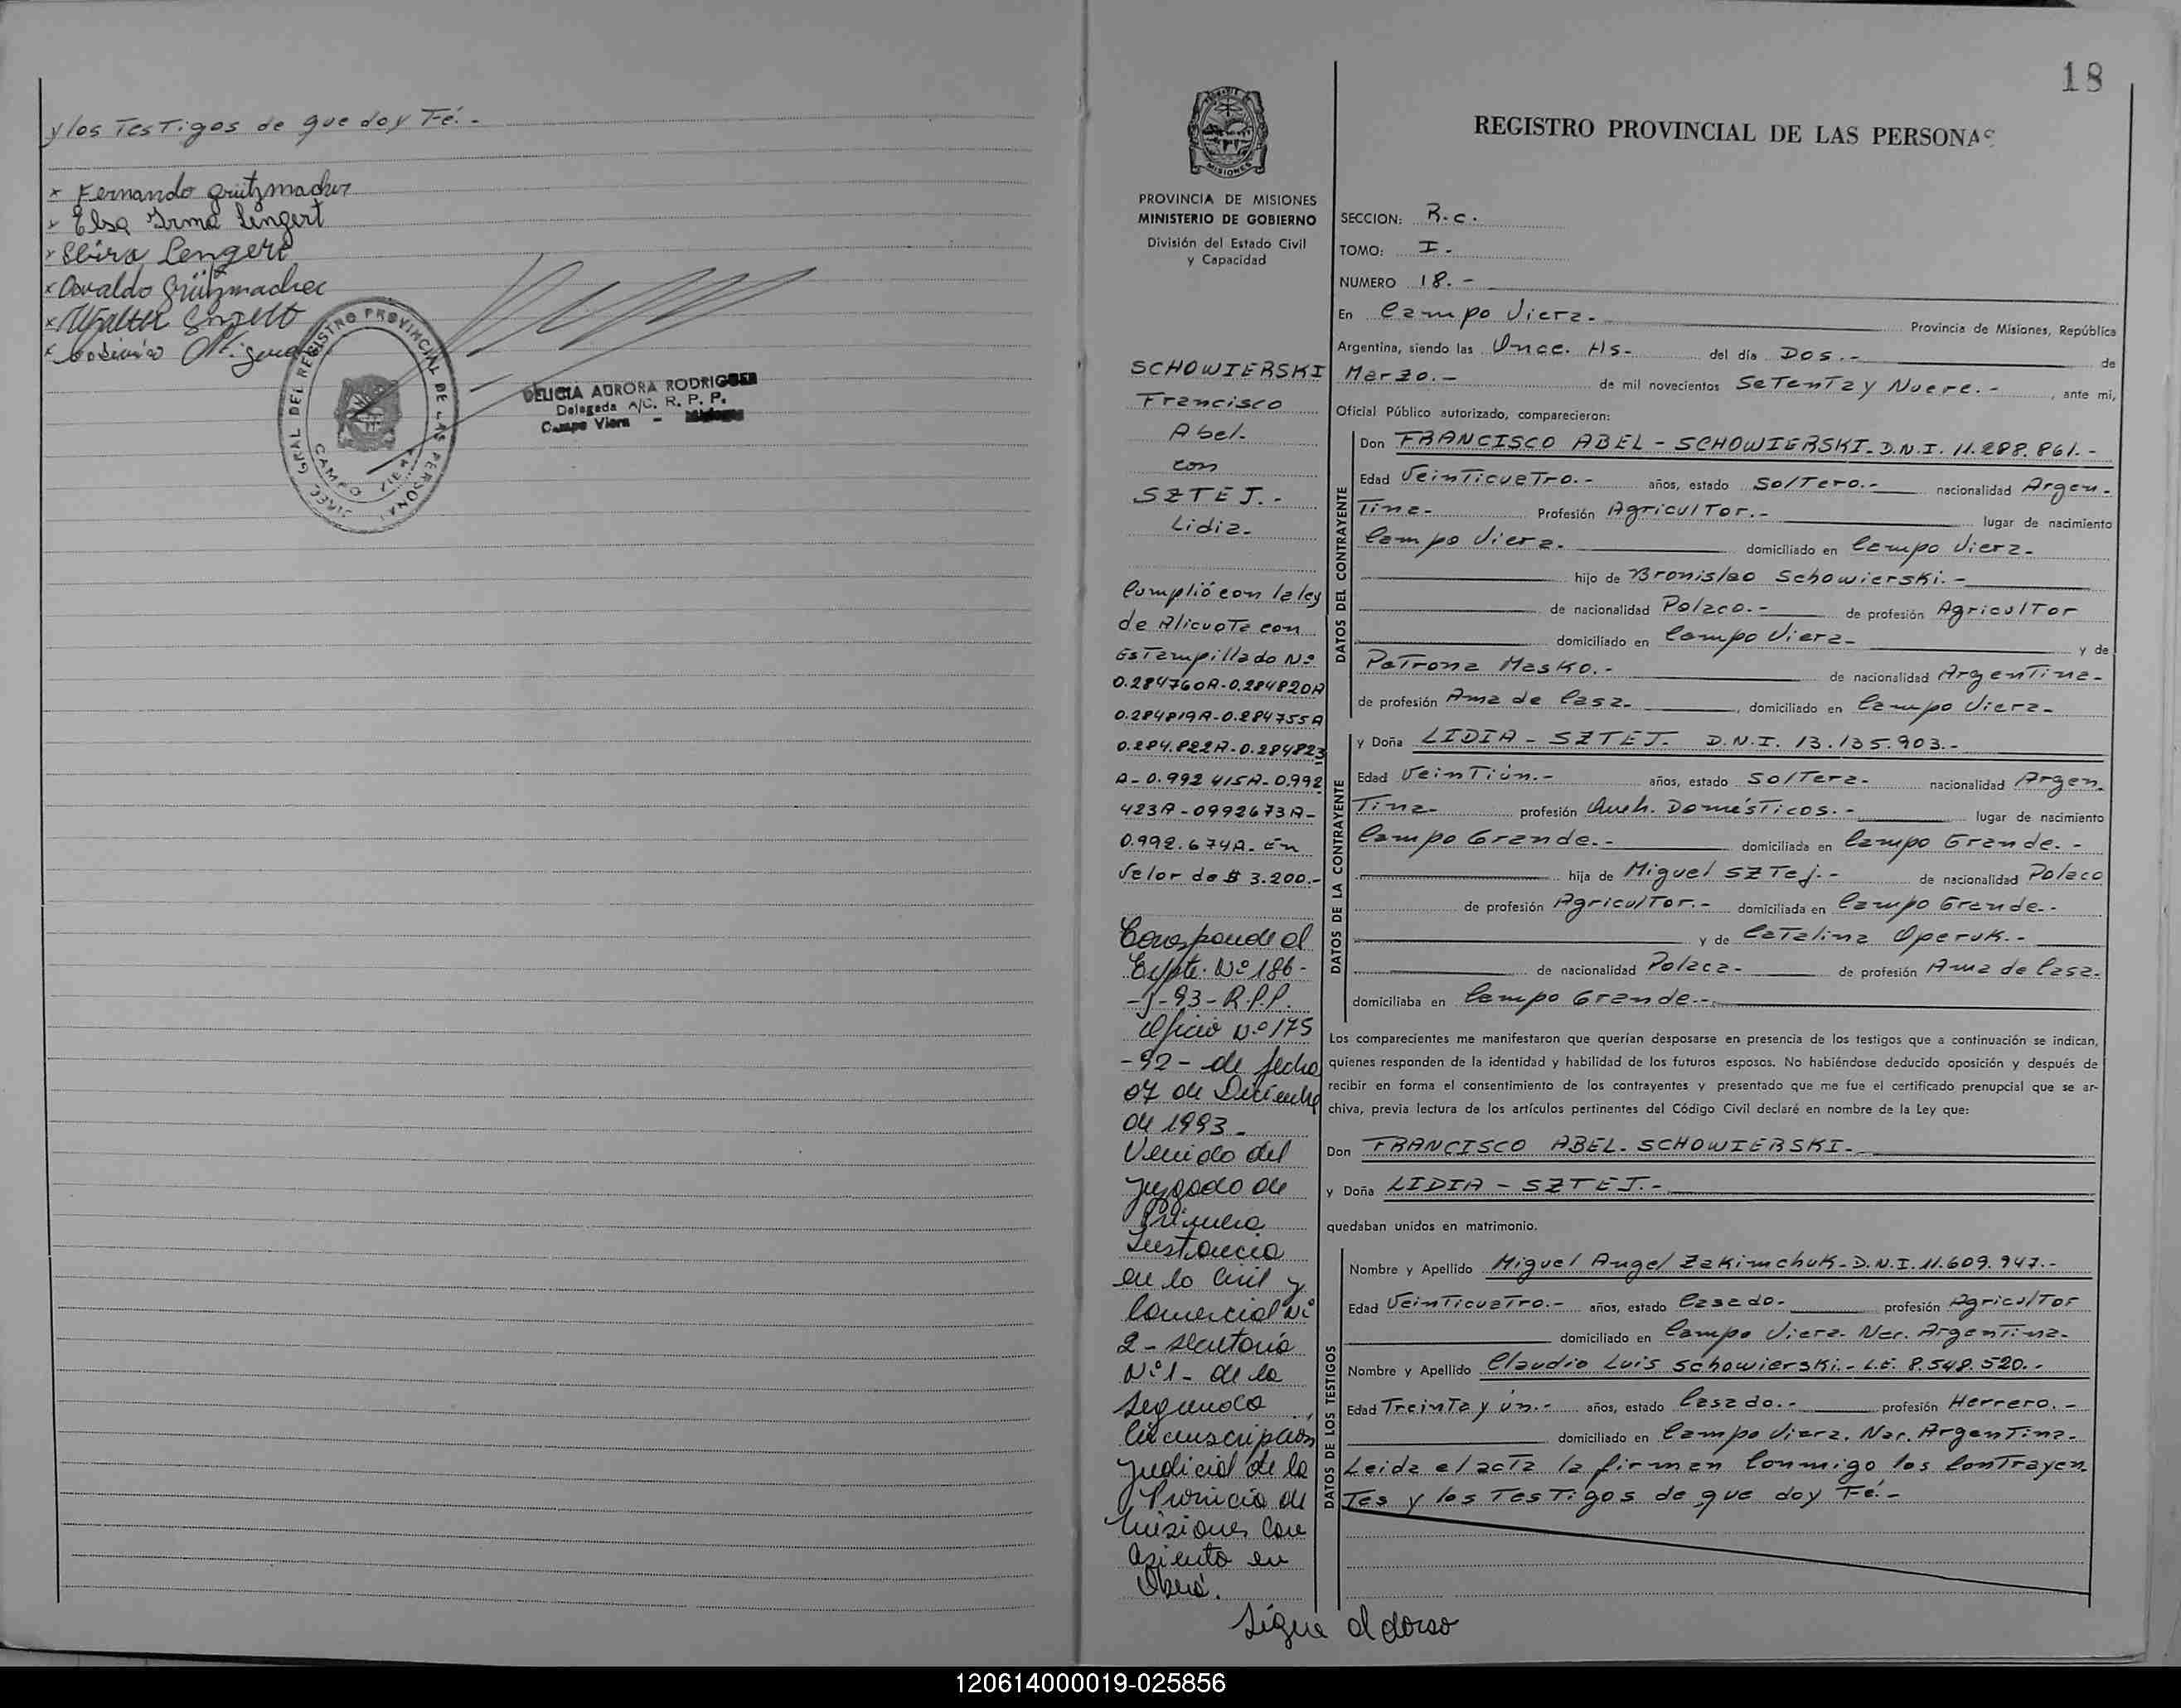 y los Testigos de que doy Fé.-
x Fernando Grützmacher
x Elsa Irma Lengert
x Elvira Lengert
x Osvaldo Grützmacher
x Walter
x
DIREC. GRAL DEL REGISTRO PROVINCIAL DE LAS PERSONAS
CAMPO VIERA
DELICIA AURORA RODRIGUEZ
Delegada A/C. R. P. P.
Campo Viera - Misiones
18
MISIONES
PROVINCIA DE MISIONES
MINISTERIO DE GOBIERNO
División del Estado Civil
y Capacidad
SCHOWIERSKI
Francisco
Abel.
con
SZTEJ.-
Lidia-
Cumplió con la ley
de Alicuota con
Estampillado Nº
0.284760A-0.284820A
0.284819A-0.284755A
0.284.822A-0.284823
A-0.992415A-0.992
423A-0992673A-
0.992.674A. En
Valor de $ 3.200.-
Corresponde al
Expte. Nº 186-
-J-93-R.P.P.
Oficio Nº 175
-92- de fecha
07 de Diciembre
de 1993.-
Venido del
Juzgado de
Primera
Instancia
en lo Civil y
Comercial Nº
2- secretaria
Nº1- de la
Segunda
Circunscripción
Judicial de la
Provincia de
Misiones con
asiento en
Oberá.
Sigue al dorso
REGISTRO PROVINCIAL DE LAS PERSONAS
SECCION: R.c.
TOMO: I.-
NUMERO 18.-
En Campo Viera.- Provincia de Misiones, República
Argentina, siendo las Once. Hs- del día Dos.- de
Marzo.- de mil novecientos Setenta y Nueve.-, ante mi,
Oficial Público autorizado, comparecieron:
DATOS DEL CONTRAYENTE
Don FRANCISCO ABEL - SCHOWIERSKI- D.N.I. 11.288.861.-
Edad Veinticuatro.- años, estado Soltero.- nacionalidad Argen-
Tina- Profesión Agricultor.- lugar de nacimiento
Campo Viera.- domiciliado en Campo Viera-
hijo de Bronislao Schowierski.-
de nacionalidad Polaco.- de profesión Agricultor
domiciliado en Campo Viera- y de
Petrona Masko.- de nacionalidad Argentina-
de profesión Ama de Casa-, domiciliado en Campo Viera-
DATOS DE LA CONTRAYENTE
y Doña LIDIA - SZTEJ- D.N.I. 13.135.903.-
Edad Veintiún.- años, estado Soltera- nacionalidad Argen-
Tina- profesión Queh. Domésticos.- lugar de nacimiento
Campo Grande.- domiciliada en Campo Grande.-
hija de Miguel Sztej.- de nacionalidad Polaco
de profesión Agricultor.- domiciliada en Campo Grande.-
y de Catalina Operuk.-
de nacionalidad Polaca- de profesión Ama de Casa-
domiciliaba en Campo Grande.-
Los comparecientes me manifestaron que querían desposarse en presencia de los testigos que a continuación se indican,
quienes responden de la identidad y habilidad de los futuros esposos. No habiéndose deducido oposición y después de
recibir en forma el consentimiento de los contrayentes y presentado que me fue el certificado prenupcial que se ar-
chiva, previa lectura de los artículos pertinentes del Código Civil declaré en nombre de la Ley que:
Don FRANCISCO ABEL- SCHOWIERSKI-
y Doña LIDIA - SZTEJ.-
quedaban unidos en matrimonio.
DATOS DE LOS TESTIGOS
Nombre y Apellido Miguel Angel Zakimchuk- D.N.I. 11.609.947.-
Edad Veinticuatro.- años, estado Casado- profesión Agricultor
domiciliado en Campo Viera- Nac. Argentina-
Nombre y Apellido Claudio Luis Schowierski.- L.E. 8.548.520.-
Edad Treinta y ún.- años, estado Casado.- profesión Herrero.-
domiciliado en Campo Viera. Nac. Argentina-
Leida el acta la firman Conmigo los Contrayen-
Tes y los Testigos de que doy Fé.-
120614000019-025856